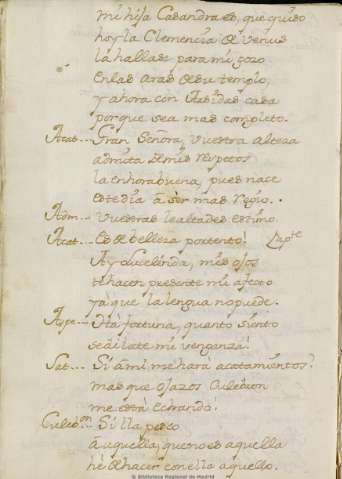 mi hija Casandra es, que quiso
hoy la Clemencia de Venus
la hallase para mi gozo
en las aras de su templo,
y ahora con Asbidas casa
porque sea mas completo.
Acat... Gran Señora, Vuestra Alteza
admita de mis respetos
la enhorabuena, pues nace
este dia a ser mas Regio.
Adm... Vuestras lealtades estimo.
Acat... Es de belleza portento! Ap.te
Ay mis ojos
te hacer presente mi afecto
ya que la lengua no puede.
Aspe... Ha fortuna, quanto siento
se dilate mi venganza!
Sat... Si à mi me hará acatamientos?
mas que ojazos Culebron
me está echando!
Culeb.on Si lla pesco
à aquella, que no es aquella
hé de hacer con ella aquello.
© Biblioteca Regional de Madrid